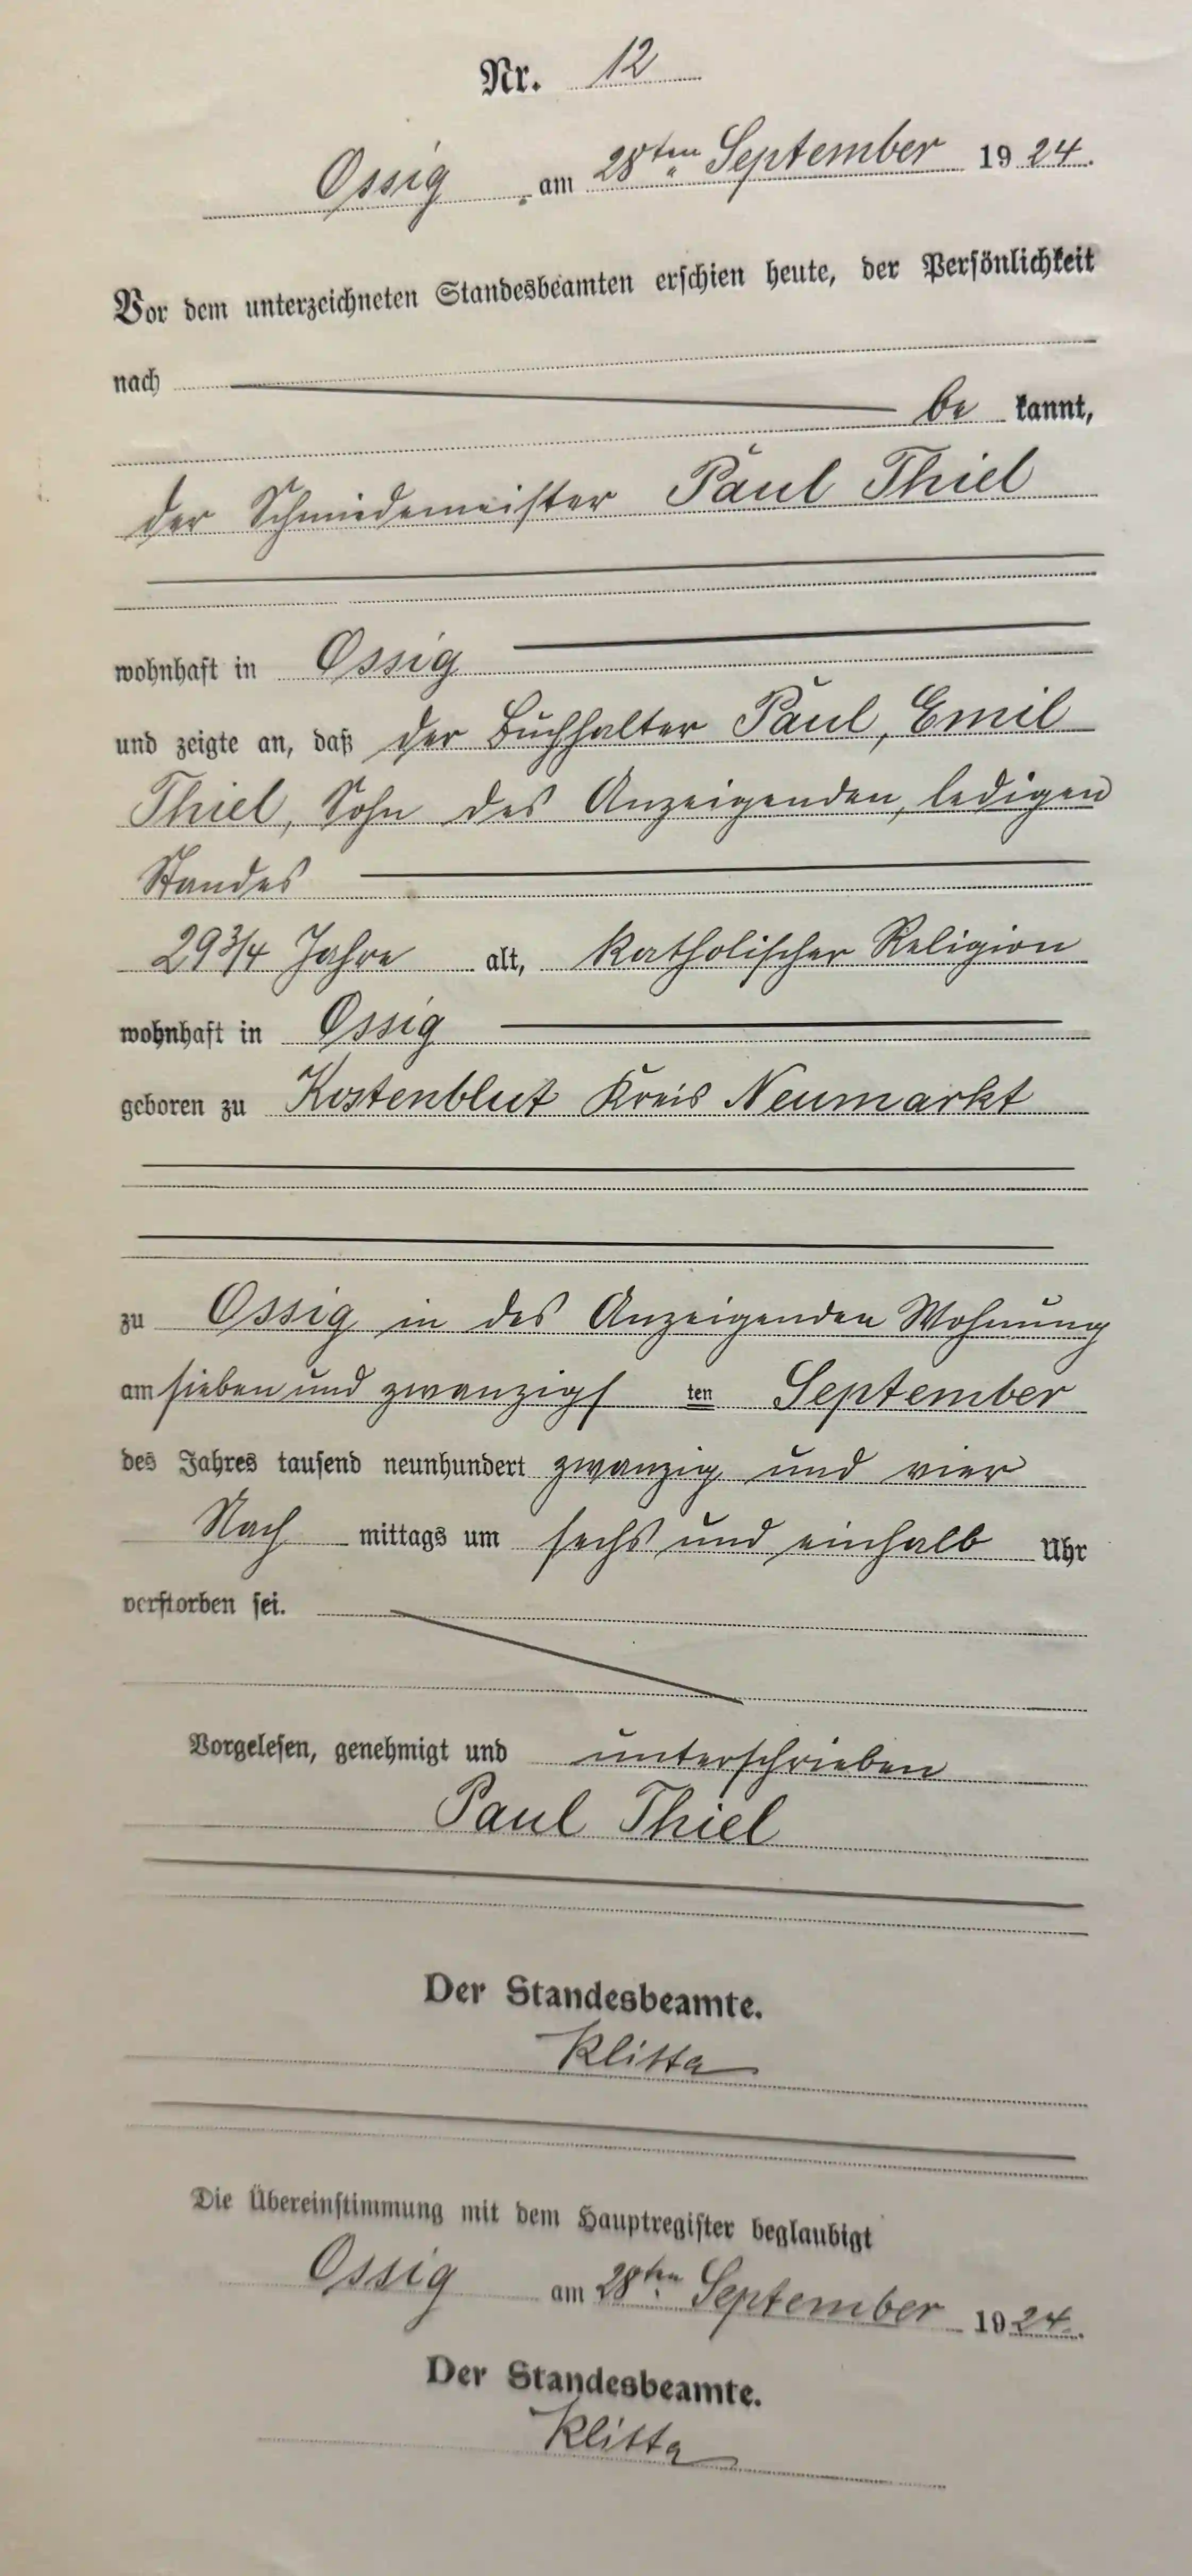 Nr. 12
Ossig, am 28ten September 1924.
Vor dem unterzeichneten Standesbeamten erschien heute, der Persönlichkeit
nach
be kannt,
der Schmiedemeister Paul Thiel
wohnhaft in Ossig
und zeigte an, daß der Buchhalter Paul, Emil
Thiel, Sohn des Anzeigenden, ledigen
Standes
29 3/4 Jahre alt, katholischer Religion
wohnhaft in Ossig
geboren zu Kostenblut Kreis Neumarkt
zu Ossig in des Anzeigenden Wohnung
am sieben und zwanzigs ten September
des Jahres tausend neunhundert zwanzig und vier
Nach mittags um sechs und einhalb Uhr
verstorben sei.
Vorgelesen, genehmigt und unterschrieben
Paul Thiel
Der Standesbeamte.
Klitta
Die Übereinstimmung mit dem Hauptregister beglaubigt
Ossig am 28ten September 1924.
Der Standesbeamte.
Klitta